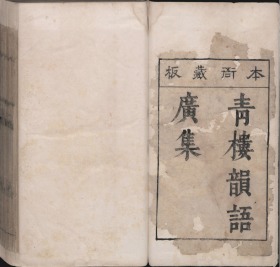 本衙藏板
青樓韻語
廣集